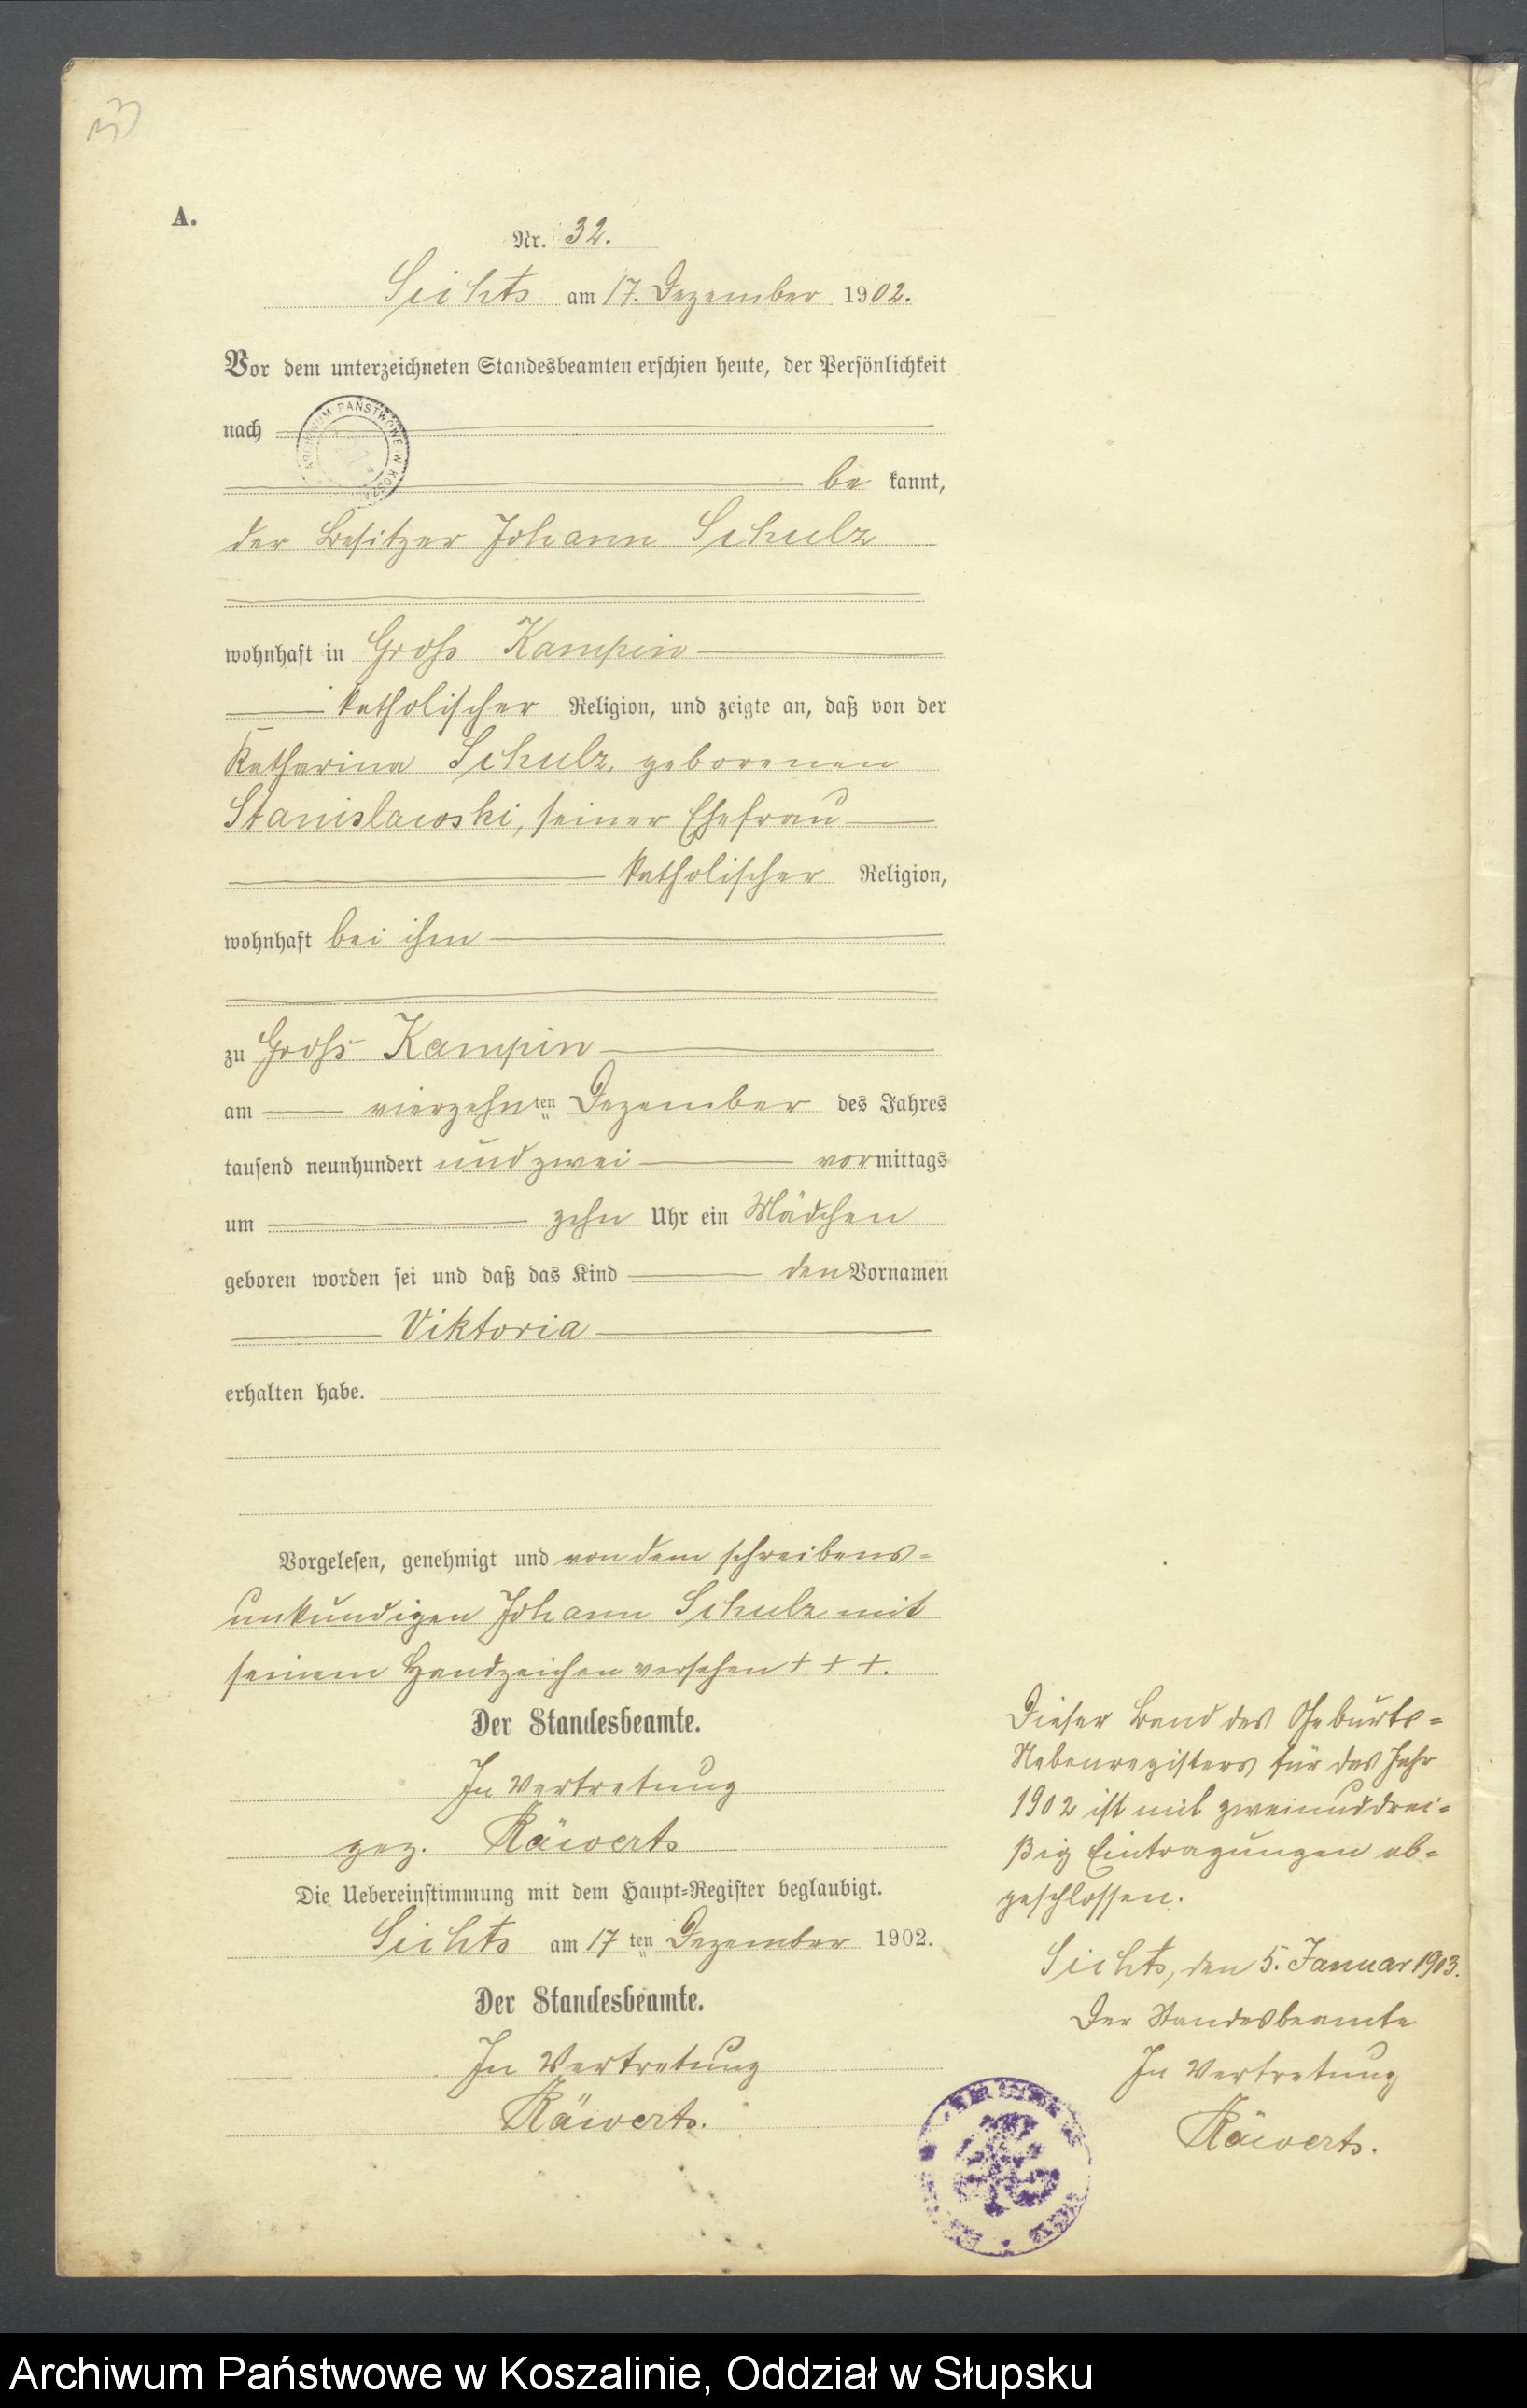 33
A.
Nr. 32.
Sichts am 17. Dezember 1902.
Vor dem unterzeichneten Standesbeamten erschien heute, der Persönlichkeit
nach
be kannt,
der Besitzer Johann Schulz
wohnhaft in Groß Kampin
katholischer Religion, und zeigte an, daß von der
Katharina Schulz, geborenen
Stanislawski, seiner Ehefrau
katholischer Religion,
wohnhaft bei ihm
zu Groß Kampin
am vierzehn ten Dezember des Jahres
tausend neunhundert und zwei vormittags
um zehn Uhr ein Mädchen
geboren worden sei und daß das Kind den Vornamen
Viktoria
erhalten habe.
Vorgelesen, genehmigt und von dem schreibens-
unkundigen Johann Schulz mit
seinem Handzeichen versehen + + +.
Der Standesbeamte.
In Vertretung
gez. Räwerts
Die Uebereinstimmung mit dem Haupt-Register beglaubigt.
Sichts am 17 ten Dezember 1902.
Der Standesbeamte.
In Vertretung
Räwerts.
Dieser Band des Geburts-
Nebenregisters für das Jahr
1902 ist mit zweiunddrei-
ßig Eintragungen ab-
geschlossen.
Sichts, den 5. Januar 1903.
Der Standesbeamte
In Vertretung
Räwerts.
ARCHIWUM PAŃSTWOWE W
Archiwum Państwowe w Koszalinie, Oddział w Słupsku